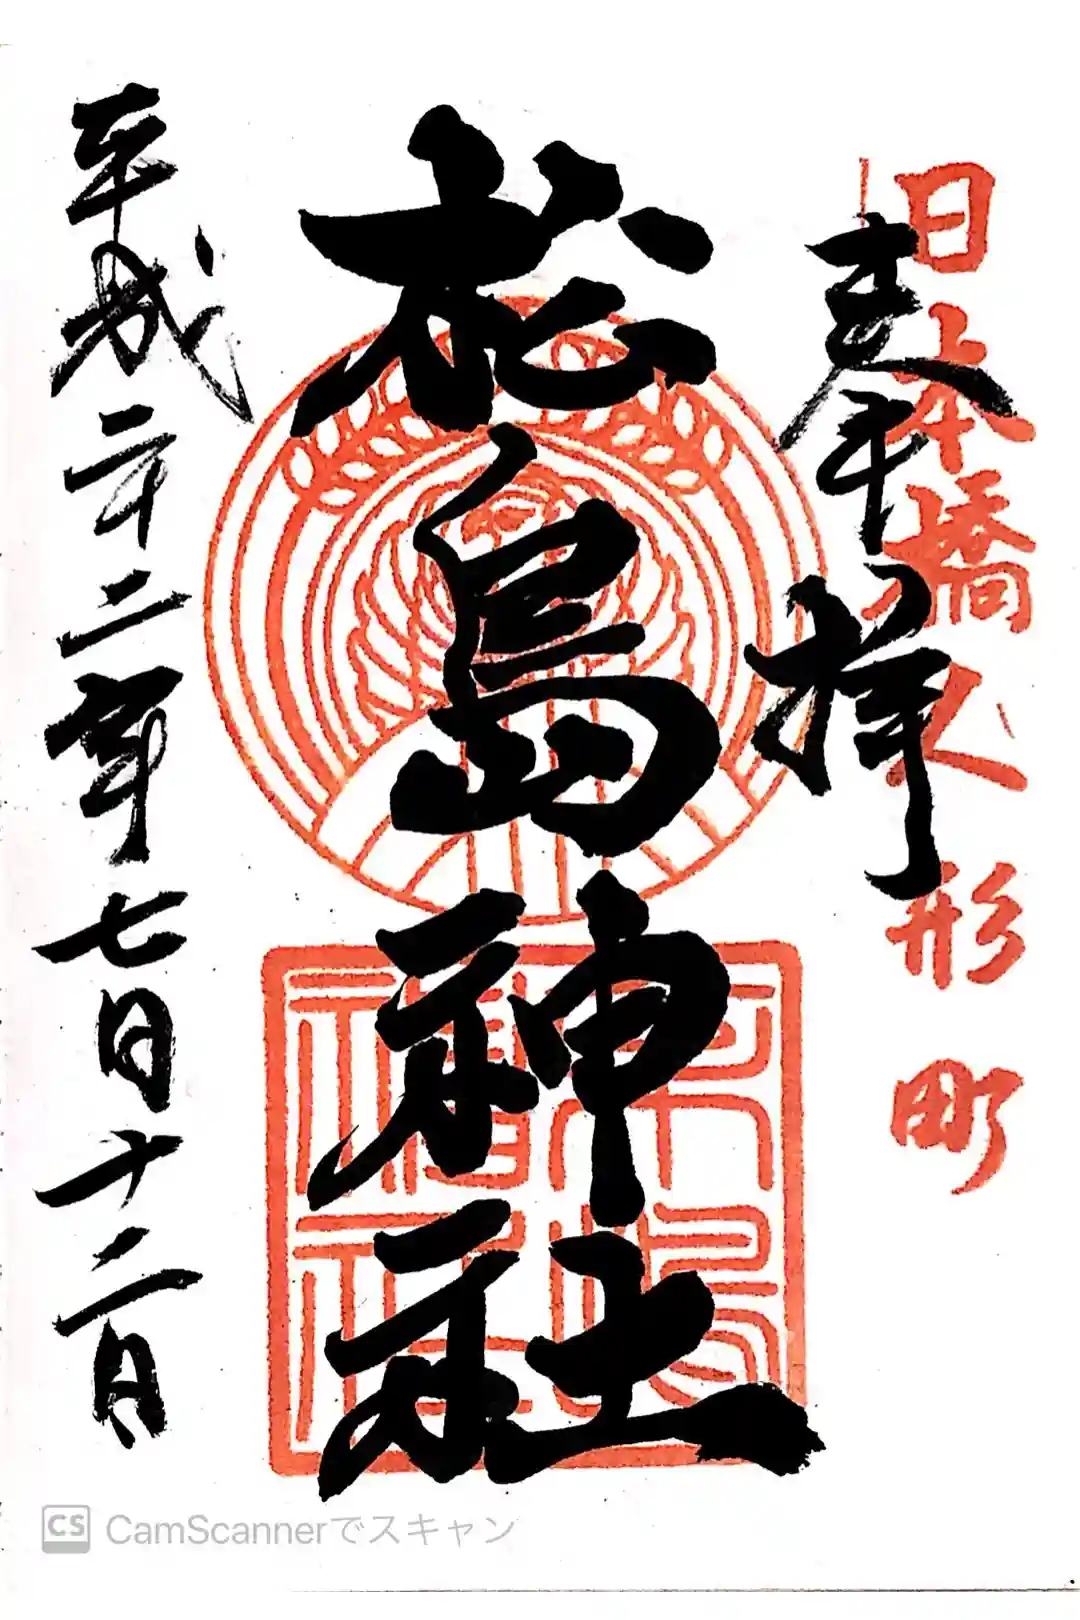 日本橋人形町
奉拝
松島神社
平成二十二年七月十二日
松島神社
CS CamScannerでスキャン